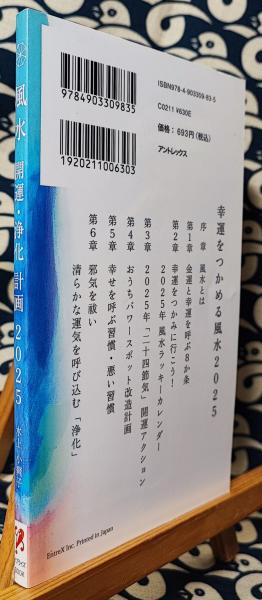 風水 開運・浄化 計画 2025
ISBN978-4-903309-83-5
C0211 ¥630E
価格：693円（税込）
アントレックス
9784903309835
1920211006303
幸運をつかめる風水2025
序 章 風水とは
第1章 金運と幸運を呼ぶ8か条
第2章 幸運をつかみに行こう！
2025年 風水ラッキーカレンダー
第3章 2025年「二十四節気」開運アクション
第4章 おうちパワースポット改造計画
第5章 幸せを呼ぶ習慣・悪い習慣
第6章 邪気を祓い
清らかな運気を呼び込む「浄化」
EntreX Inc. Printed in Japan